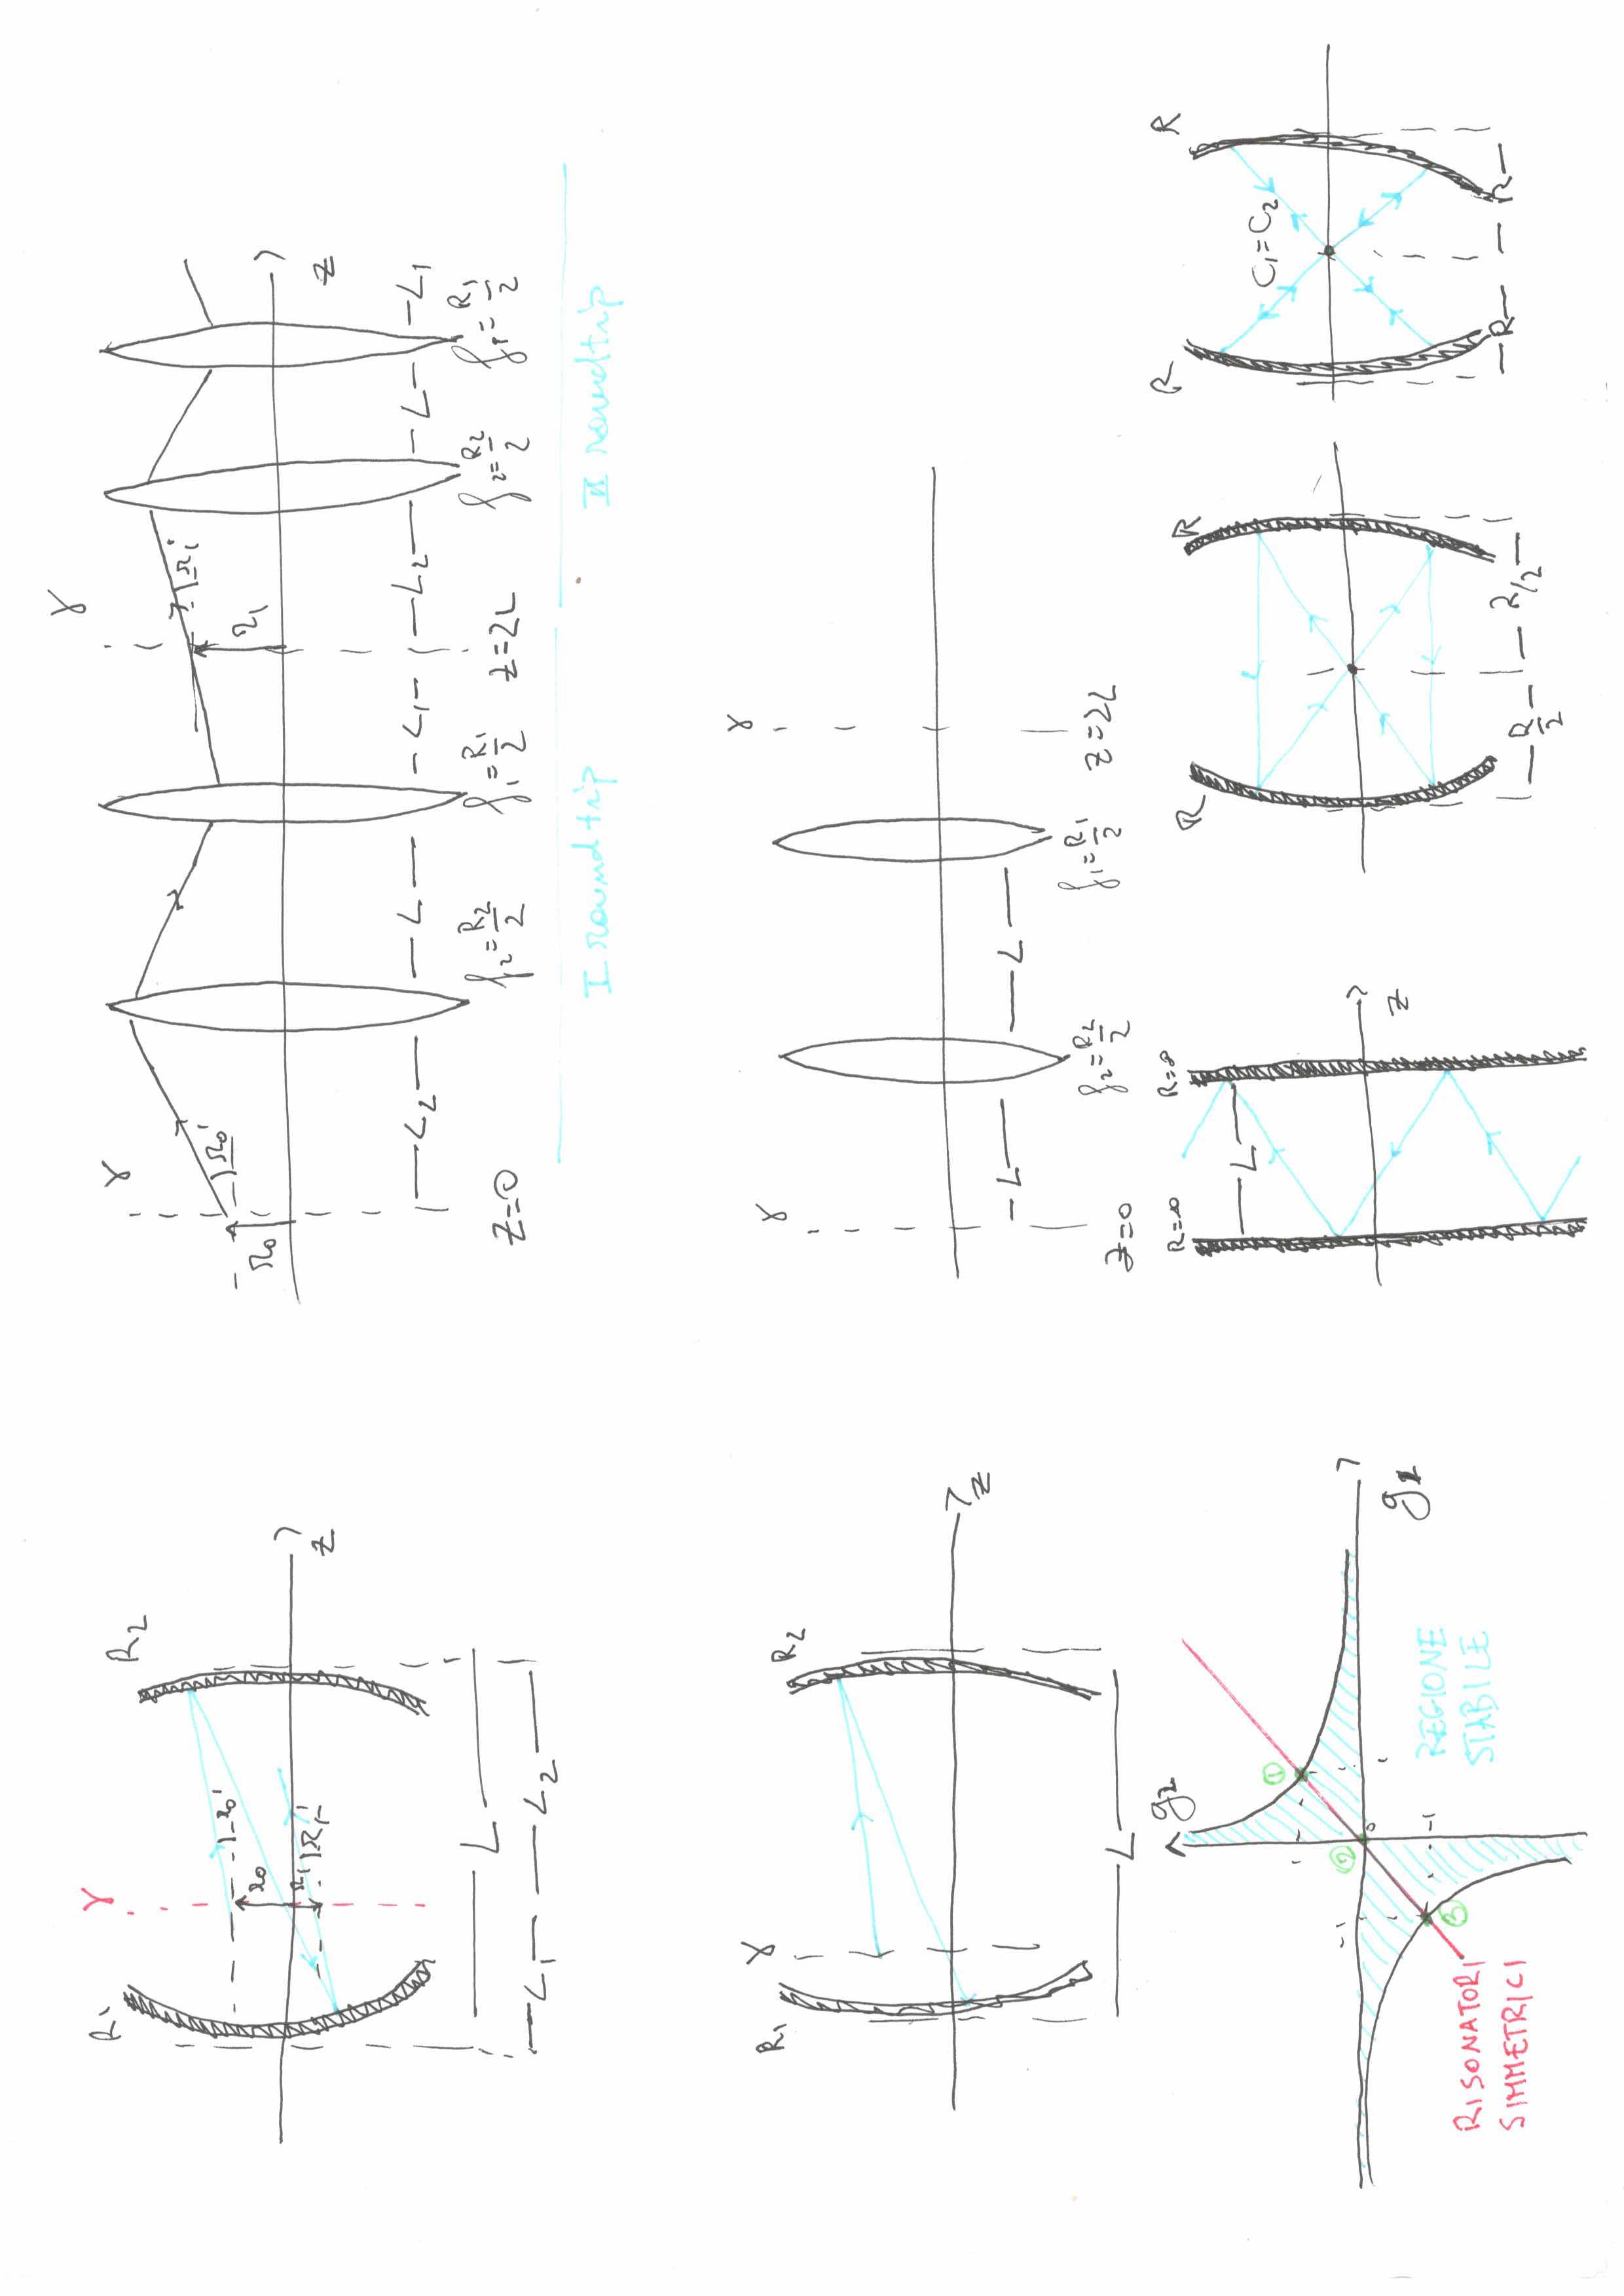 R1
γ
R2
r0'
r0
r1
r1'
z
L
L1
L2
γ
γ
r0'
r0
r1'
r1
z
L2
L
L1
L2
L
L1
z=0
f2=R2/2
f1=R1/2
z=2L
f2=R2/2
f1=R1/2
I roundtrip
II roundtrip
R1
γ
R2
z
L
γ
γ
L
L
z=0
f2=R2/2
f1=R1/2
z=2L
g2
1
①
-1
②
0
1
③
-1
REGIONE
STABILE
RISONATORI
SIMMETRICI
R=∞
R=∞
L
z
R
R
R/2
R/2
R
R
C1=C2
R
R